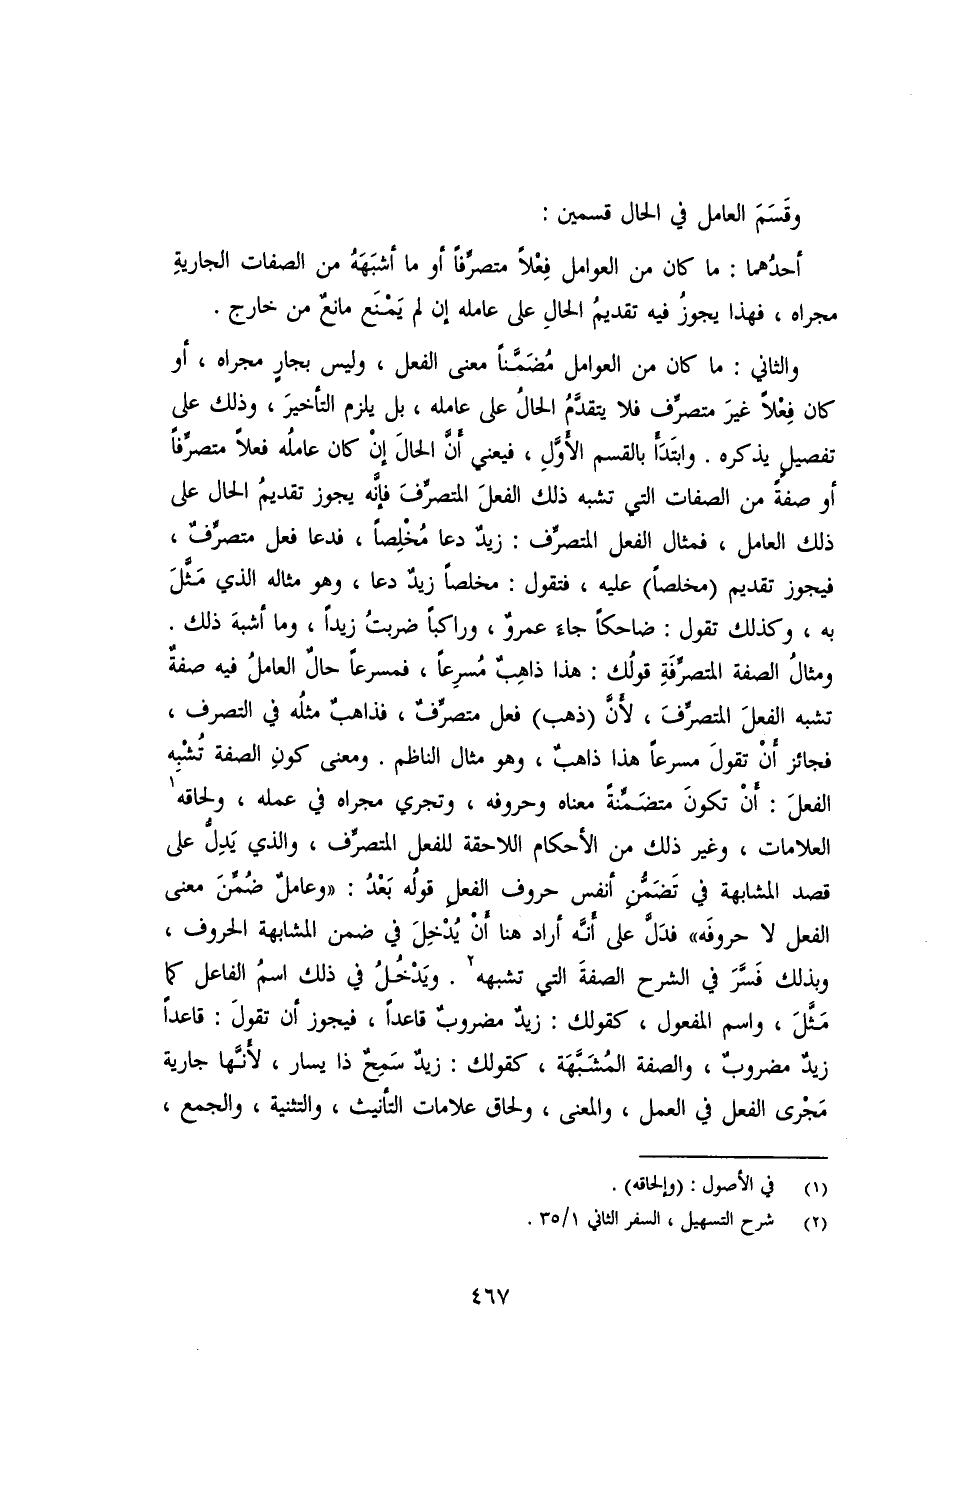 وقَسَمَ العامل في الحال قسمين :
أحدُهما : ما كان من العوامل فِعْلاً متصرِّفاً أو ما أشبَهَهُ من الصفات الجاريةِ
مجراه ، فهذا يجوزُ فيه تقديمُ الحالِ على عامله إن لم يَمْنَع مانعٌ من خارج .
والثاني : ما كان من العوامل مُضَمَّناً معنى الفعل ، وليس بجارٍ مجراه ، أو
كان فِعْلاً غيرَ متصرِّف فلا يتقدَّمُ الحالُ على عامله ، بل يلزم التأخيرَ ، وذلك على
تفصيلٍ يذكره . وابتَدَأَ بالقسم الأَوَّلِ ، فيعني أَنَّ الحالَ إنْ كان عاملُه فعلاً متصرِّفاً
أو صفةً من الصفات التي تشبه ذلك الفعلَ المتصرِّفَ فإنَّه يجوز تقديمُ الحال على
ذلك العامل ، فمثال الفعل المتصرِّف : زيدٌ دعا مُخْلِصاً ، فدعا فعل متصرِّفٌ ،
فيجوز تقديم (مخلصاً) عليه ، فتقول : مخلصاً زيدٌ دعا ، وهو مثاله الذي مَثَّلَ
به ، وكذلك تقول : ضاحكاً جاءَ عمروٌ ، وراكباً ضربتُ زيداً ، وما أشبهَ ذلك .
ومثالُ الصفة المتصرِّفَةِ قولُك : هذا ذاهبٌ مُسرِعاً ، فمسرعاً حالٌ العاملُ فيه صفةٌ
تشبه الفعلَ المتصرِّفَ ، لأَنَّ (ذهب) فعل متصرِّفٌ ، فذاهبٌ مثلُه في التصرف ،
فجائز أَنْ تقولَ مسرعاً هذا ذاهبٌ ، وهو مثال الناظم . ومعنى كونِ الصفة تُشْبِه
الفعلَ : أَنْ تكونَ متضَمِّنةً معناه وحروفه ، وتجري مجراه في عمله ، ولحاقه١
العلامات ، وغير ذلك من الأحكام اللاحقة للفعل المتصرِّف ، والذي يَدِلُّ على
قصد المشابهة في تَضَمُّنِ أنفس حروف الفعلِ قولُه بَعْدُ : «وعاملٌ ضُمِّنَ معنى
الفعل لا حروفَه» فدَلَّ على أَنَّه أراد هنا أَنْ يُدْخِلَ في ضمن المشابهة الحروف ،
وبذلك فَسَّرَ في الشرح الصفةَ التي تشبهه٢ . ويَدْخُلُ في ذلك اسمُ الفاعل كما
مَثَّلَ ، واسم المفعول ، كقولك : زيدٌ مضروبٌ قاعداً ، فيجوز أن تقولَ : قاعداً
زيدٌ مضروبٌ ، والصفة المُشَبَّهَة ، كقولك : زيدٌ سَمِحٌ ذا يسار ، لأَنَّها جارية
مَجْرى الفعل في العمل ، والمعنى ، ولحاق علامات التأنيث ، والتثنية ، والجمع ،
(١) في الأصول : (وإلحاقه) .
(٢) شرح التسهيل ، السفر الثاني ٣٥/١ .
٤٦٧